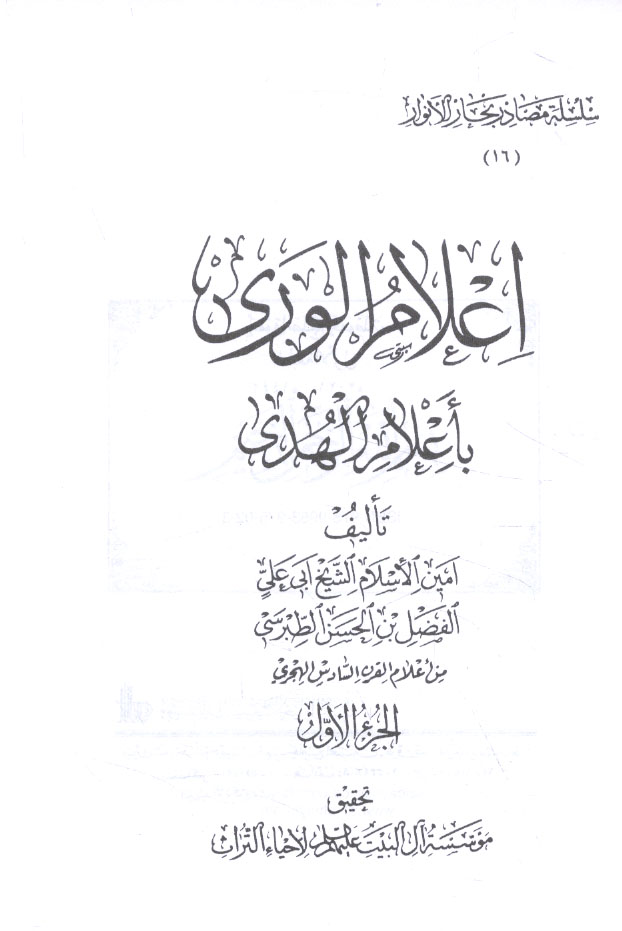 سلسلة مصادر بحار الأنوار
(١٦)
إعلام الورى
بأعلام الهدى
تأليف
أمين الأسلام الشيخ أبي علي
الفضل بن الحسن الطبرسي
من أعلام القرن السادس الهجري
الجزء الأول
تحقيق
مؤسسة آل البيت عليهم السلام لإحياء التراث